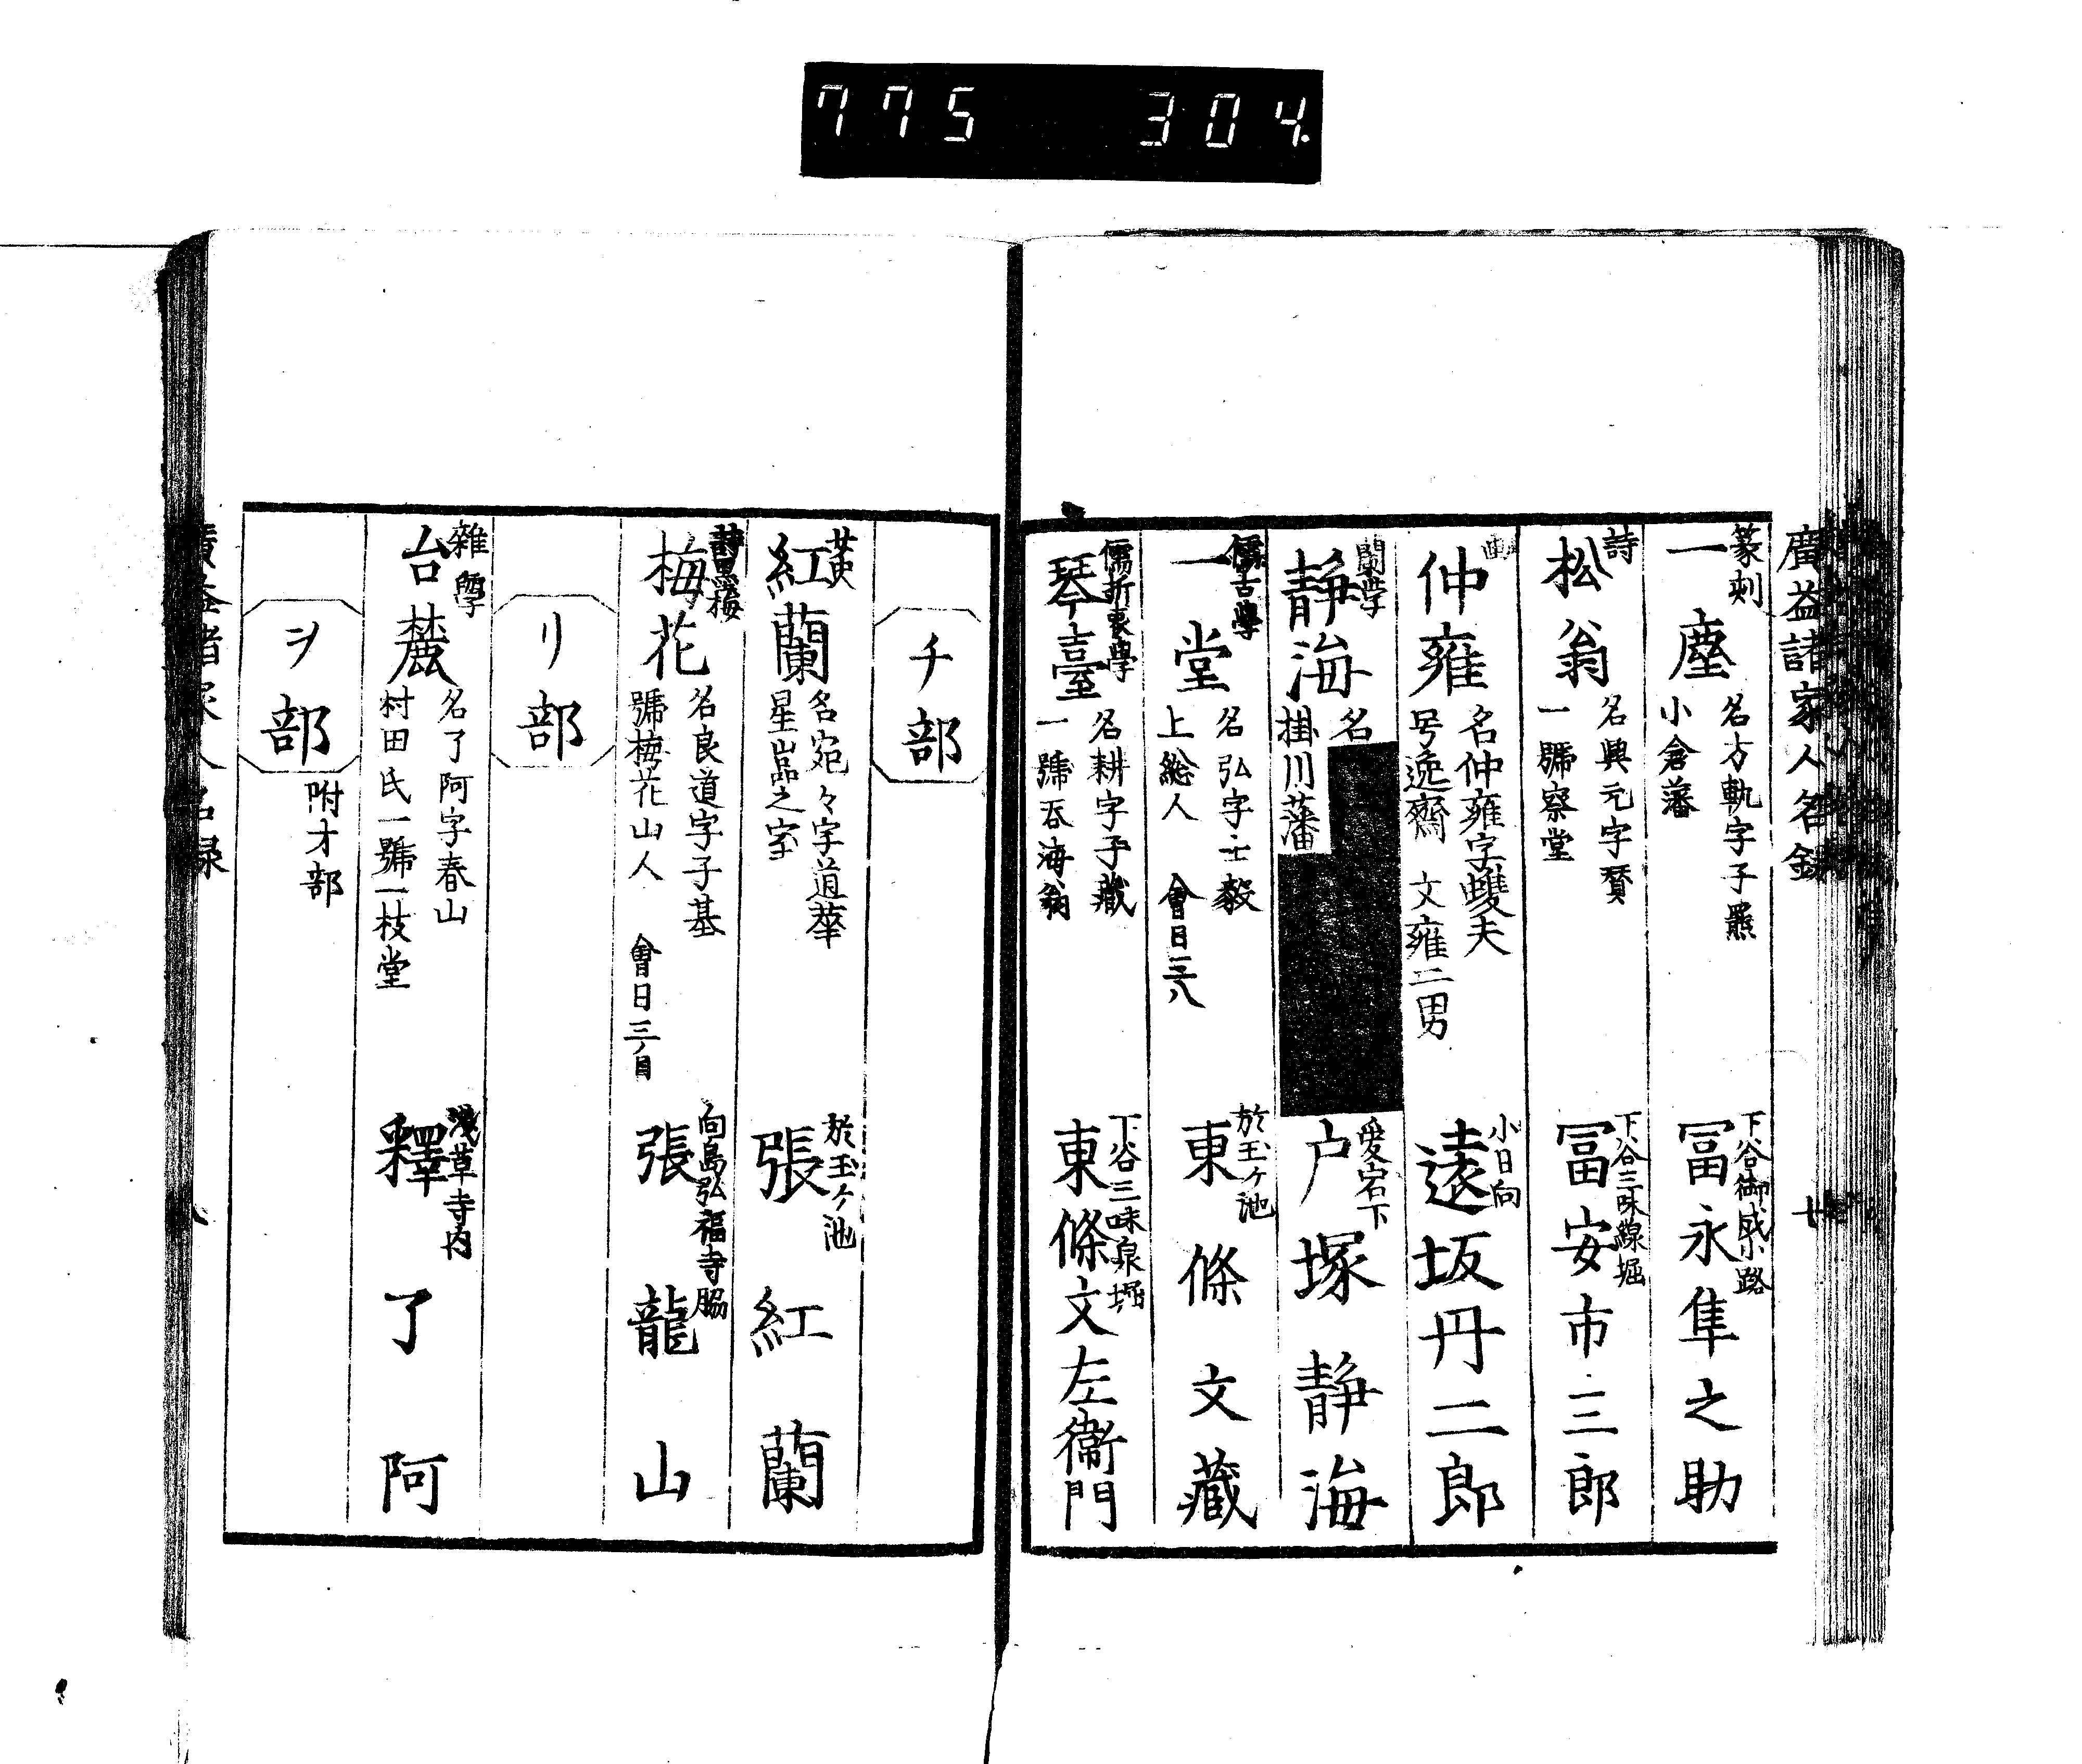 775 304.
廣益諸家人名録
篆刻
一塵
名方軌字子羆
小倉藩
下谷御成小路
冨永隼之助
詩
松翁
名興元字賛
一號察堂
下谷三味線堀
冨安市三郎
畫
仲雍
名仲雍字雙夫
号逸齋 文雍二男
小日向
遠坂丹二郎
蘭学
静海
名
掛川藩
愛宕下
戸塚静海
儒古學
一堂
名弘字士毅
上総人 會日三八
於玉ヶ池
東條文藏
儒折衷學
琴臺
名耕字子藏
一號吞海翁
下谷三味泉堀
東條文左衛門
チ部
紅蘭
名宛々字道華
星巌之室
於玉ヶ池
張紅蘭
梅花
名良道字子基
號梅花山人 會日三ノ日
向島弘福寺脇
張龍山
リ部
雜學
台麓
名了阿字春山
村田氏一號一枝堂
淺草寺内
釋了阿
ヲ部
附オ部
廣益諸家人名録